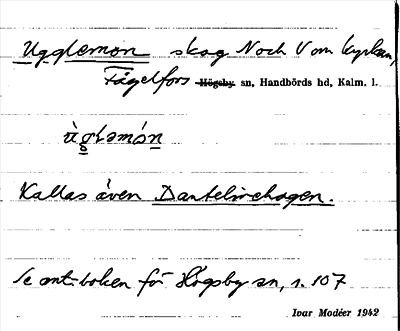 Ugglemon skog N och V om kyrkan,
Fågelfors Högsby sn, Handbörds hd, Kalm. l.
Kallas även Dantelivehagen.
Se ant.boken för Högsby sn, s. 107
Ivar Modéer 1942